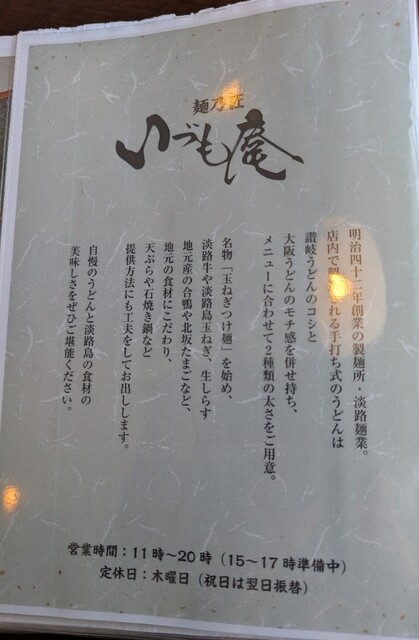 麺乃匠
いづも庵
明治四十二年創業の製麺所・淡路麺業。
店内で製される手打ち式のうどんは
讃岐うどんのコシと
大阪うどんのモチ感を併せ持ち、
メニューに合わせて2種類の太さをご用意。
名物「玉ねぎつけ麺」を始め、
淡路牛や淡路島玉ねぎ、生しらす
地元産の合鴨や北坂たまごなど、
地元の食材にこだわり、
天ぷらや石焼き鍋など
提供方法にも工夫をしてお出しします。
自慢のうどんと淡路島の食材の
美味しさをぜひご堪能ください。
営業時間：11時〜20時（15〜17時準備中）
定休日：木曜日（祝日は翌日振替）